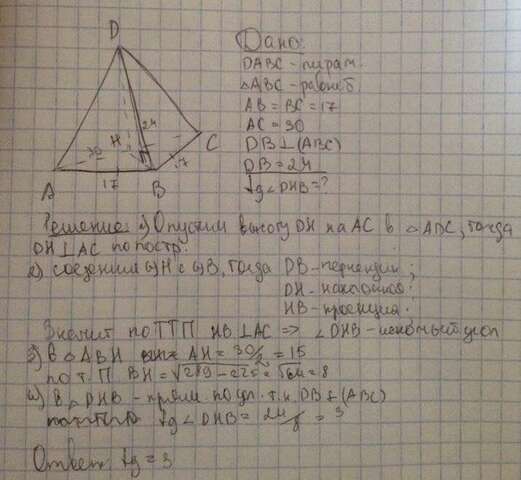 D
24
H
30
C
17
A
17
B
Дано:
DABC - пирам.
△ABC - равноб.
AB = BC = 17
AC = 30
DB ⊥ (ABC)
DB = 24
tg∠DHB = ?
Решение: 1) Опустим высоту DH на AC в △ADC, тогда
DH ⊥ AC по постр.
2) Соединим (·)H с (·)B, тогда DB - перпендик ;
DH - наклонная.
HB - проекция.
Значит по ТТП HB ⊥ AC => ∠DHB - искомый угол
3) В △ABH AH = 30/2 = 15
по т. П BH = √289-225 = √64 = 8
4) В △DHB - прям по усл. т.к. DB ⊥ (ABC)
tg∠DHB = 24/8 = 3
Ответ: tg = 3